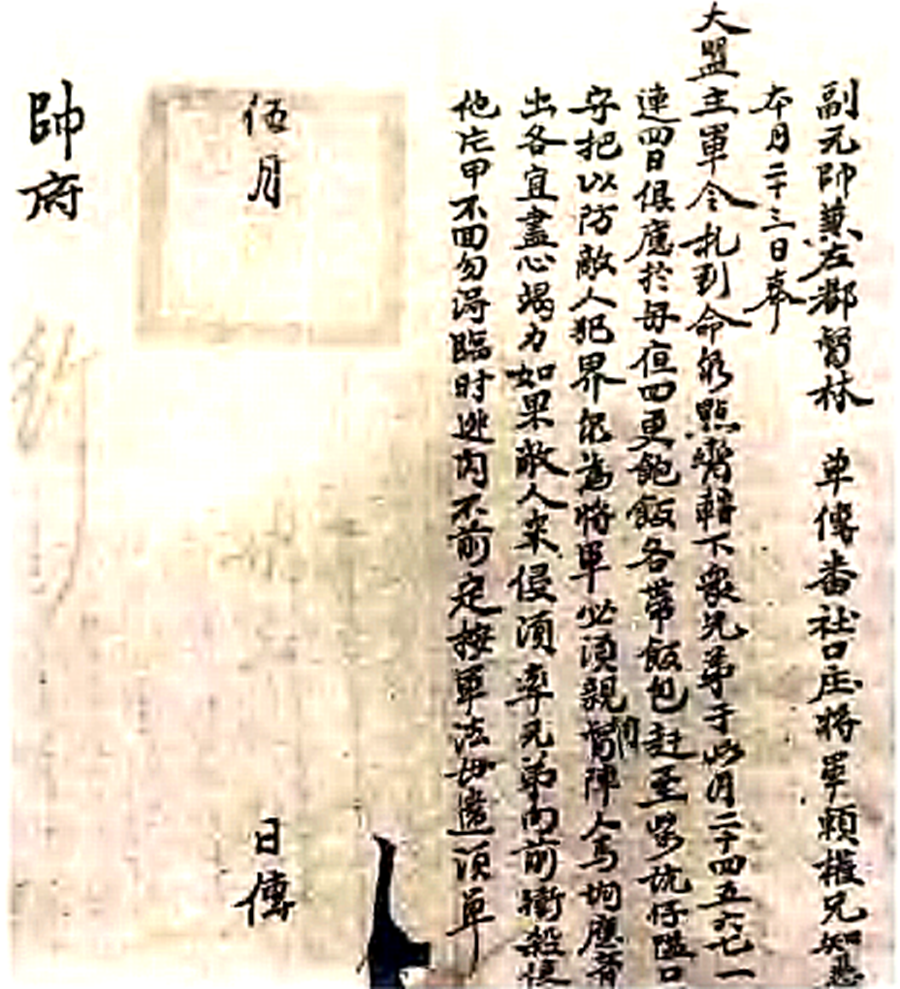 副元帥兼左都督林　單傳番社口庄將軍賴權兄知悉
本月二十三日奉
大盟主軍令札到命仰點齊轄下眾兄弟于此月二十四五六七一
連四日俱應於每夜四更飽飯各帶飯包赶至眾坑仔隘口
守把以防敵人犯界張為將軍必須親督陣人馬均應齊
出各宜盡心竭力如果敵人來侵須率兄弟向前衝殺使
他片甲不回勿得臨時逃閃不前定按軍法切遵須單
伍月
日傳
帥府